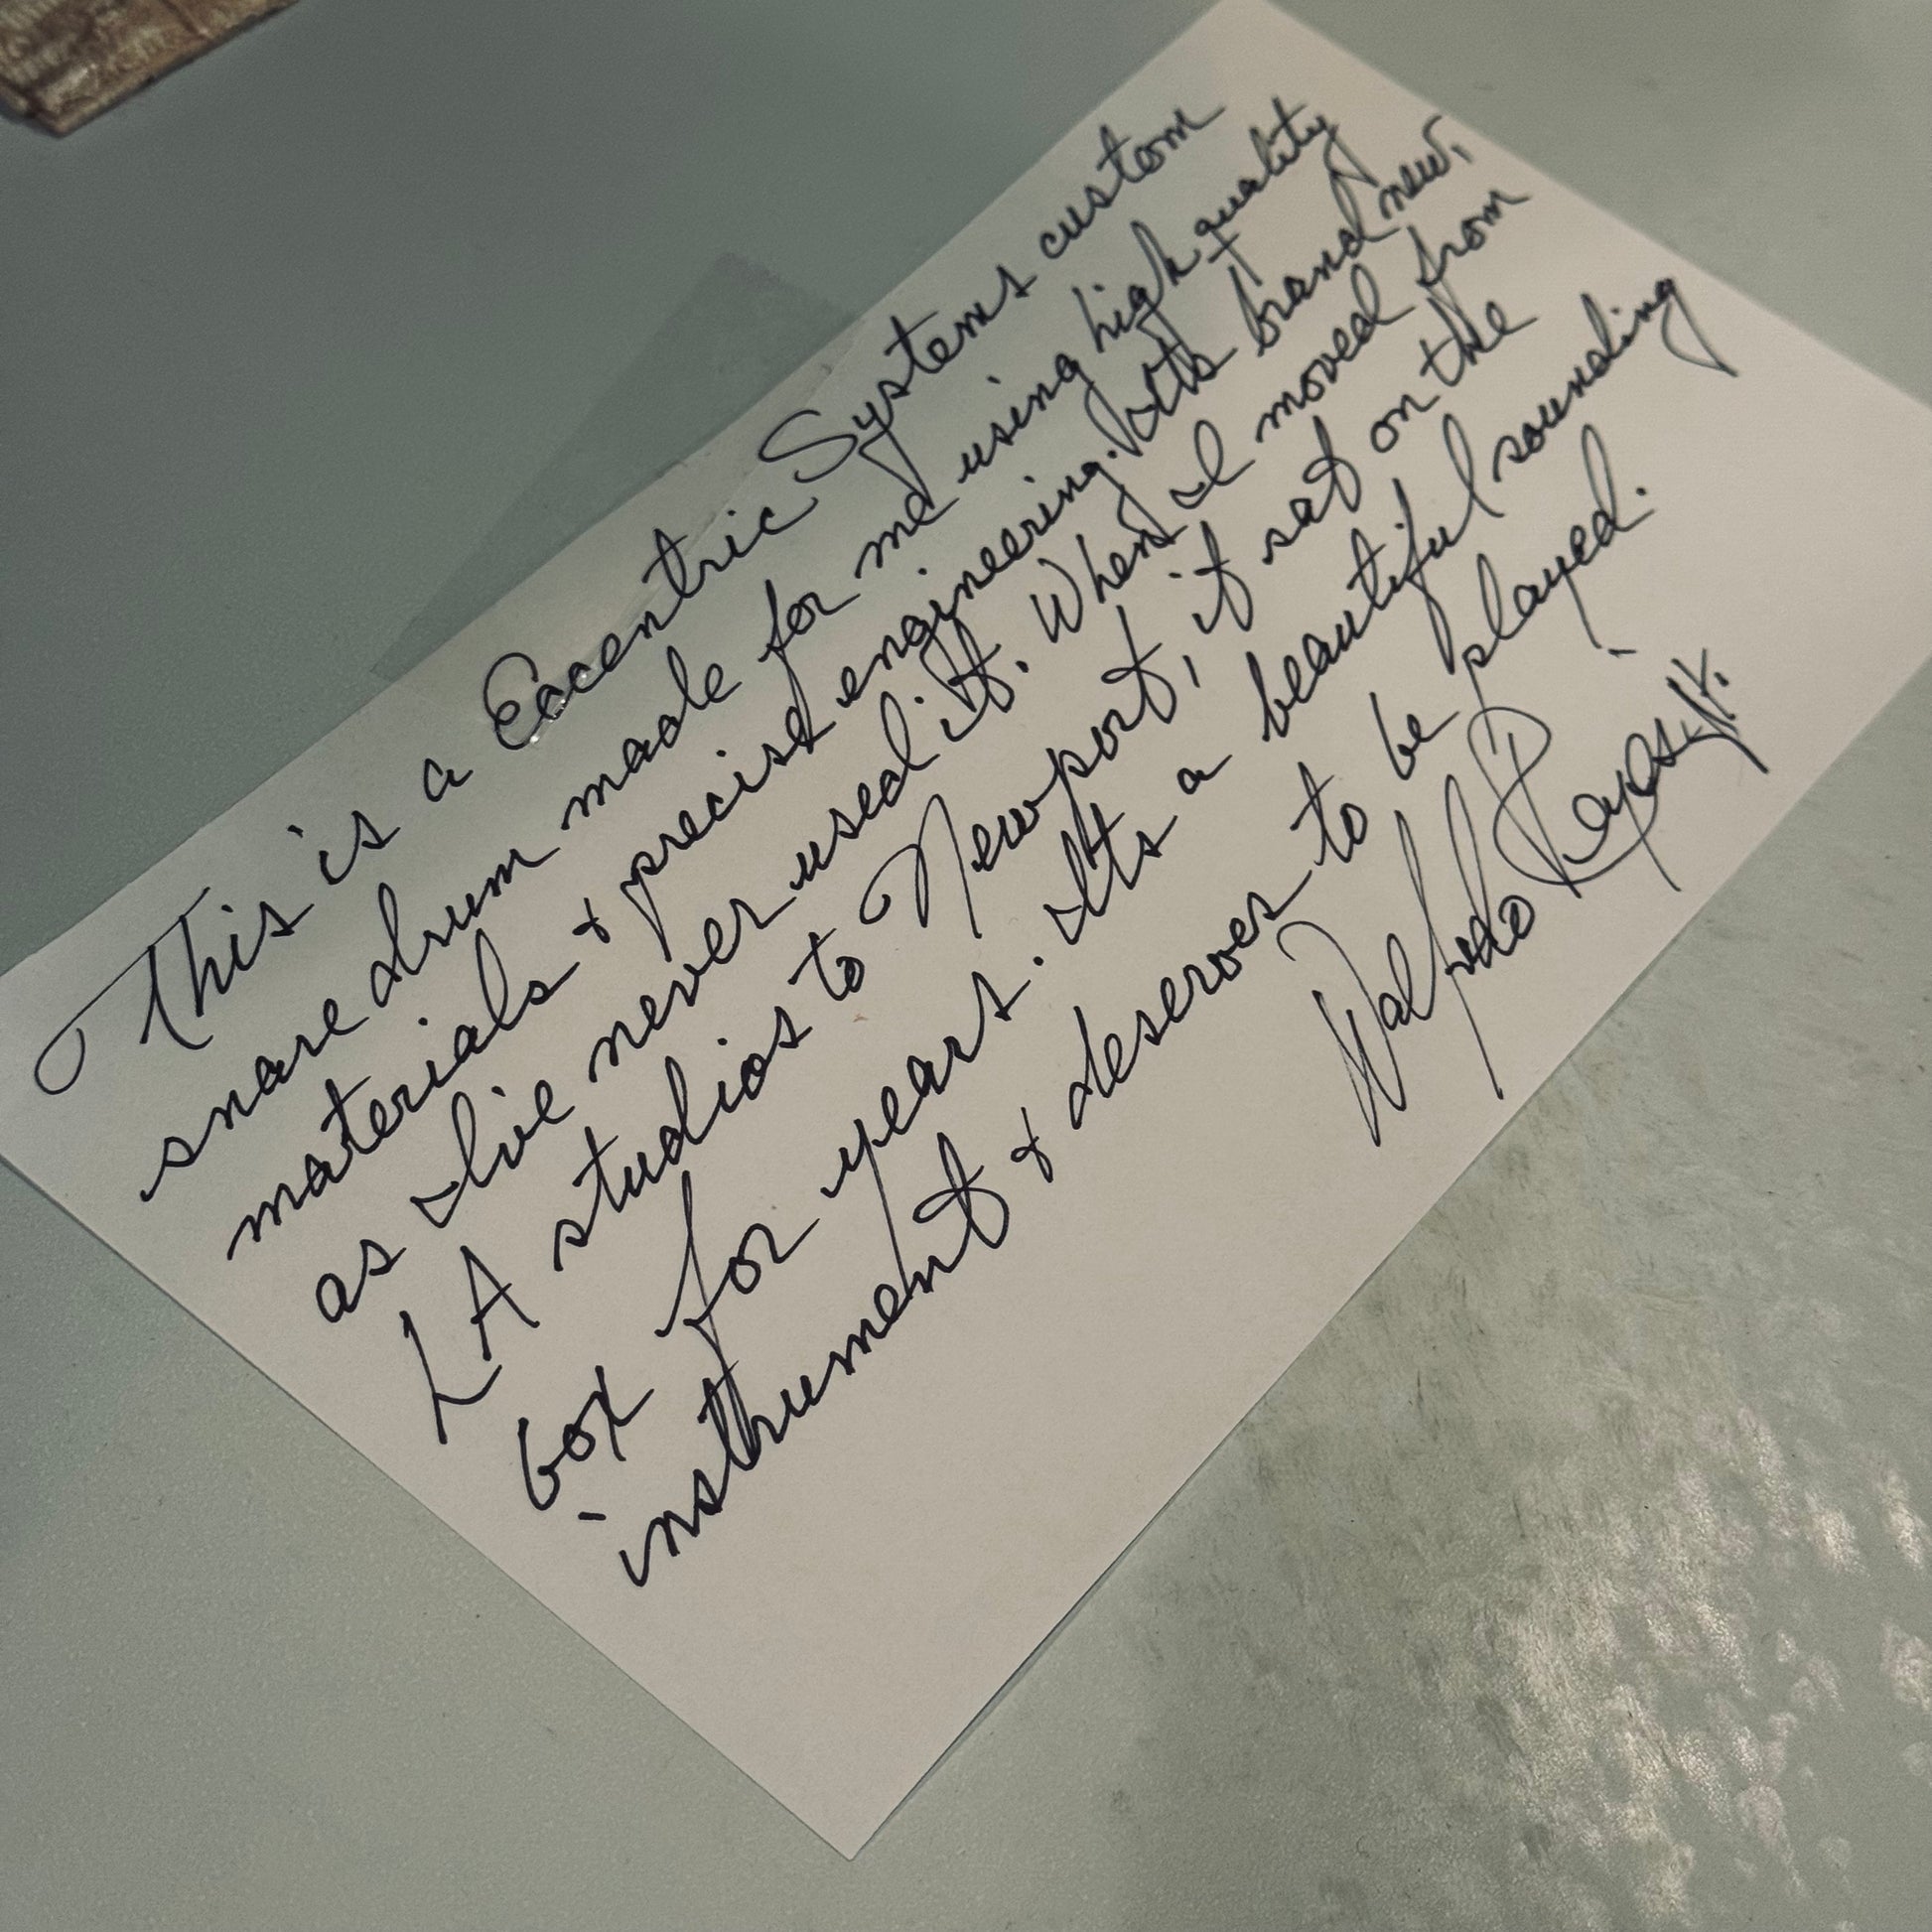 This is a Eccentric Systems custom
snare drum made for me using high quality
materials + precise engineering. Its brand new,
as I've never used it. When I moved from
LA studios to Newport, it sat on the
box for years. Its a beautiful sounding
instrument + deserves to be played.
Walfredo Reyes, Jr.